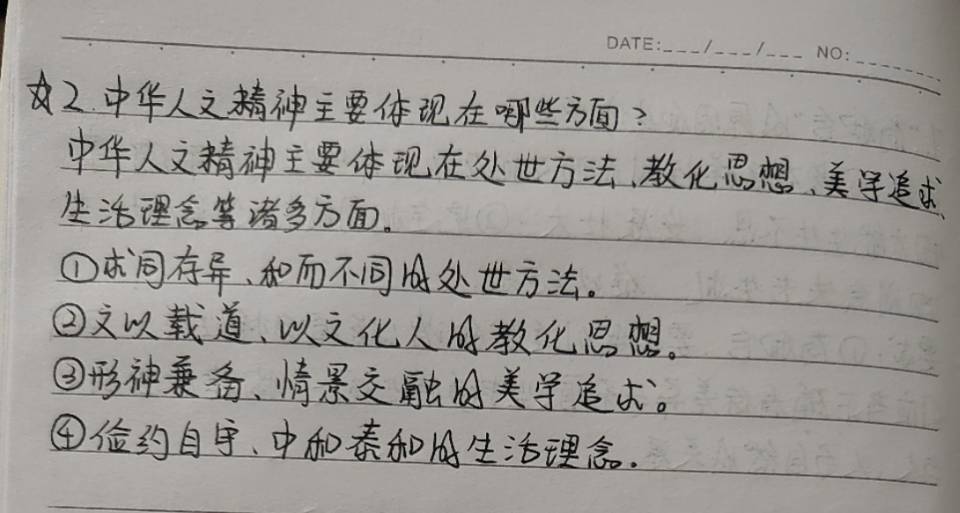 DATE:___/___/___ NO:______
☆2.中华人文精神主要体现在哪些方面?
中华人文精神主要体现在处世方法、教化思想、美学追求、
生活理念等诸多方面。
①求同存异、和而不同的处世方法。
②文以载道、以文化人的教化思想。
③形神兼备、情景交融的美学追求。
④俭约自守、中和泰和的生活理念.